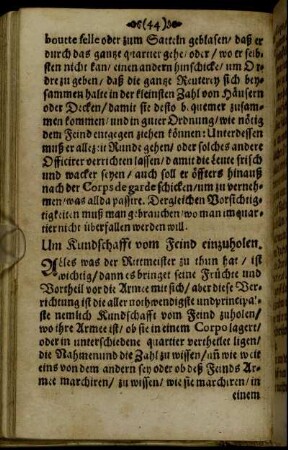 (44)
boutte selle oder zum Satteln geblasen/ daß er
durch das gantze quartier gehe/ oder/ wo er selb-
sten nicht kan/ einen andern hinschicke/ um Or-
dre zu geben/ daß die gantze Reuterey sich bey-
sammen halte in der kleinsten Zahl von Häusern
oder Decken/ damit sie desto b. quemer zusam-
men kommen/ und in guter Ordnung/ wie nötig
dem Feind entgegen ziehen können: Unterdessen
muß er allezeit Runde gehen/ oder solches andere
Officirer verrichten lassen/ damit die Leute frisch
und wacker seyen/ auch soll er öffters hinauß
nach der Corps de garde schicken/ um zu verneh-
men/ was allda passire. Dergleichen Vorsichtig-
tigkeiten muß man gebrauchen/ wo man im quar-
tier nicht überfallen werden will.
Um Kundschafft vom Feind einzuholen.
Alles was der Rittmeister zu thun hat/ ist
wichtig/ dann es bringet seine Früchte und
Vortheil vor die Armee mit sich/ aber diese Ver-
richtung ist die aller nothwendigste und principal-
ste nemlich Kundschafft vom Feind zuholen/
wo ihre Armee ist/ ob sie in einem Corpo lagert/
oder in unterschiedene quartier vertheilet ligen/
die Nahmen und die Zahl zu wissen/ uñ wie weit
eins von dem andern sey oder ob deß Feinds Ar-
mee marchiren/ zu wissen/ wie sie marchiren/ in
einem